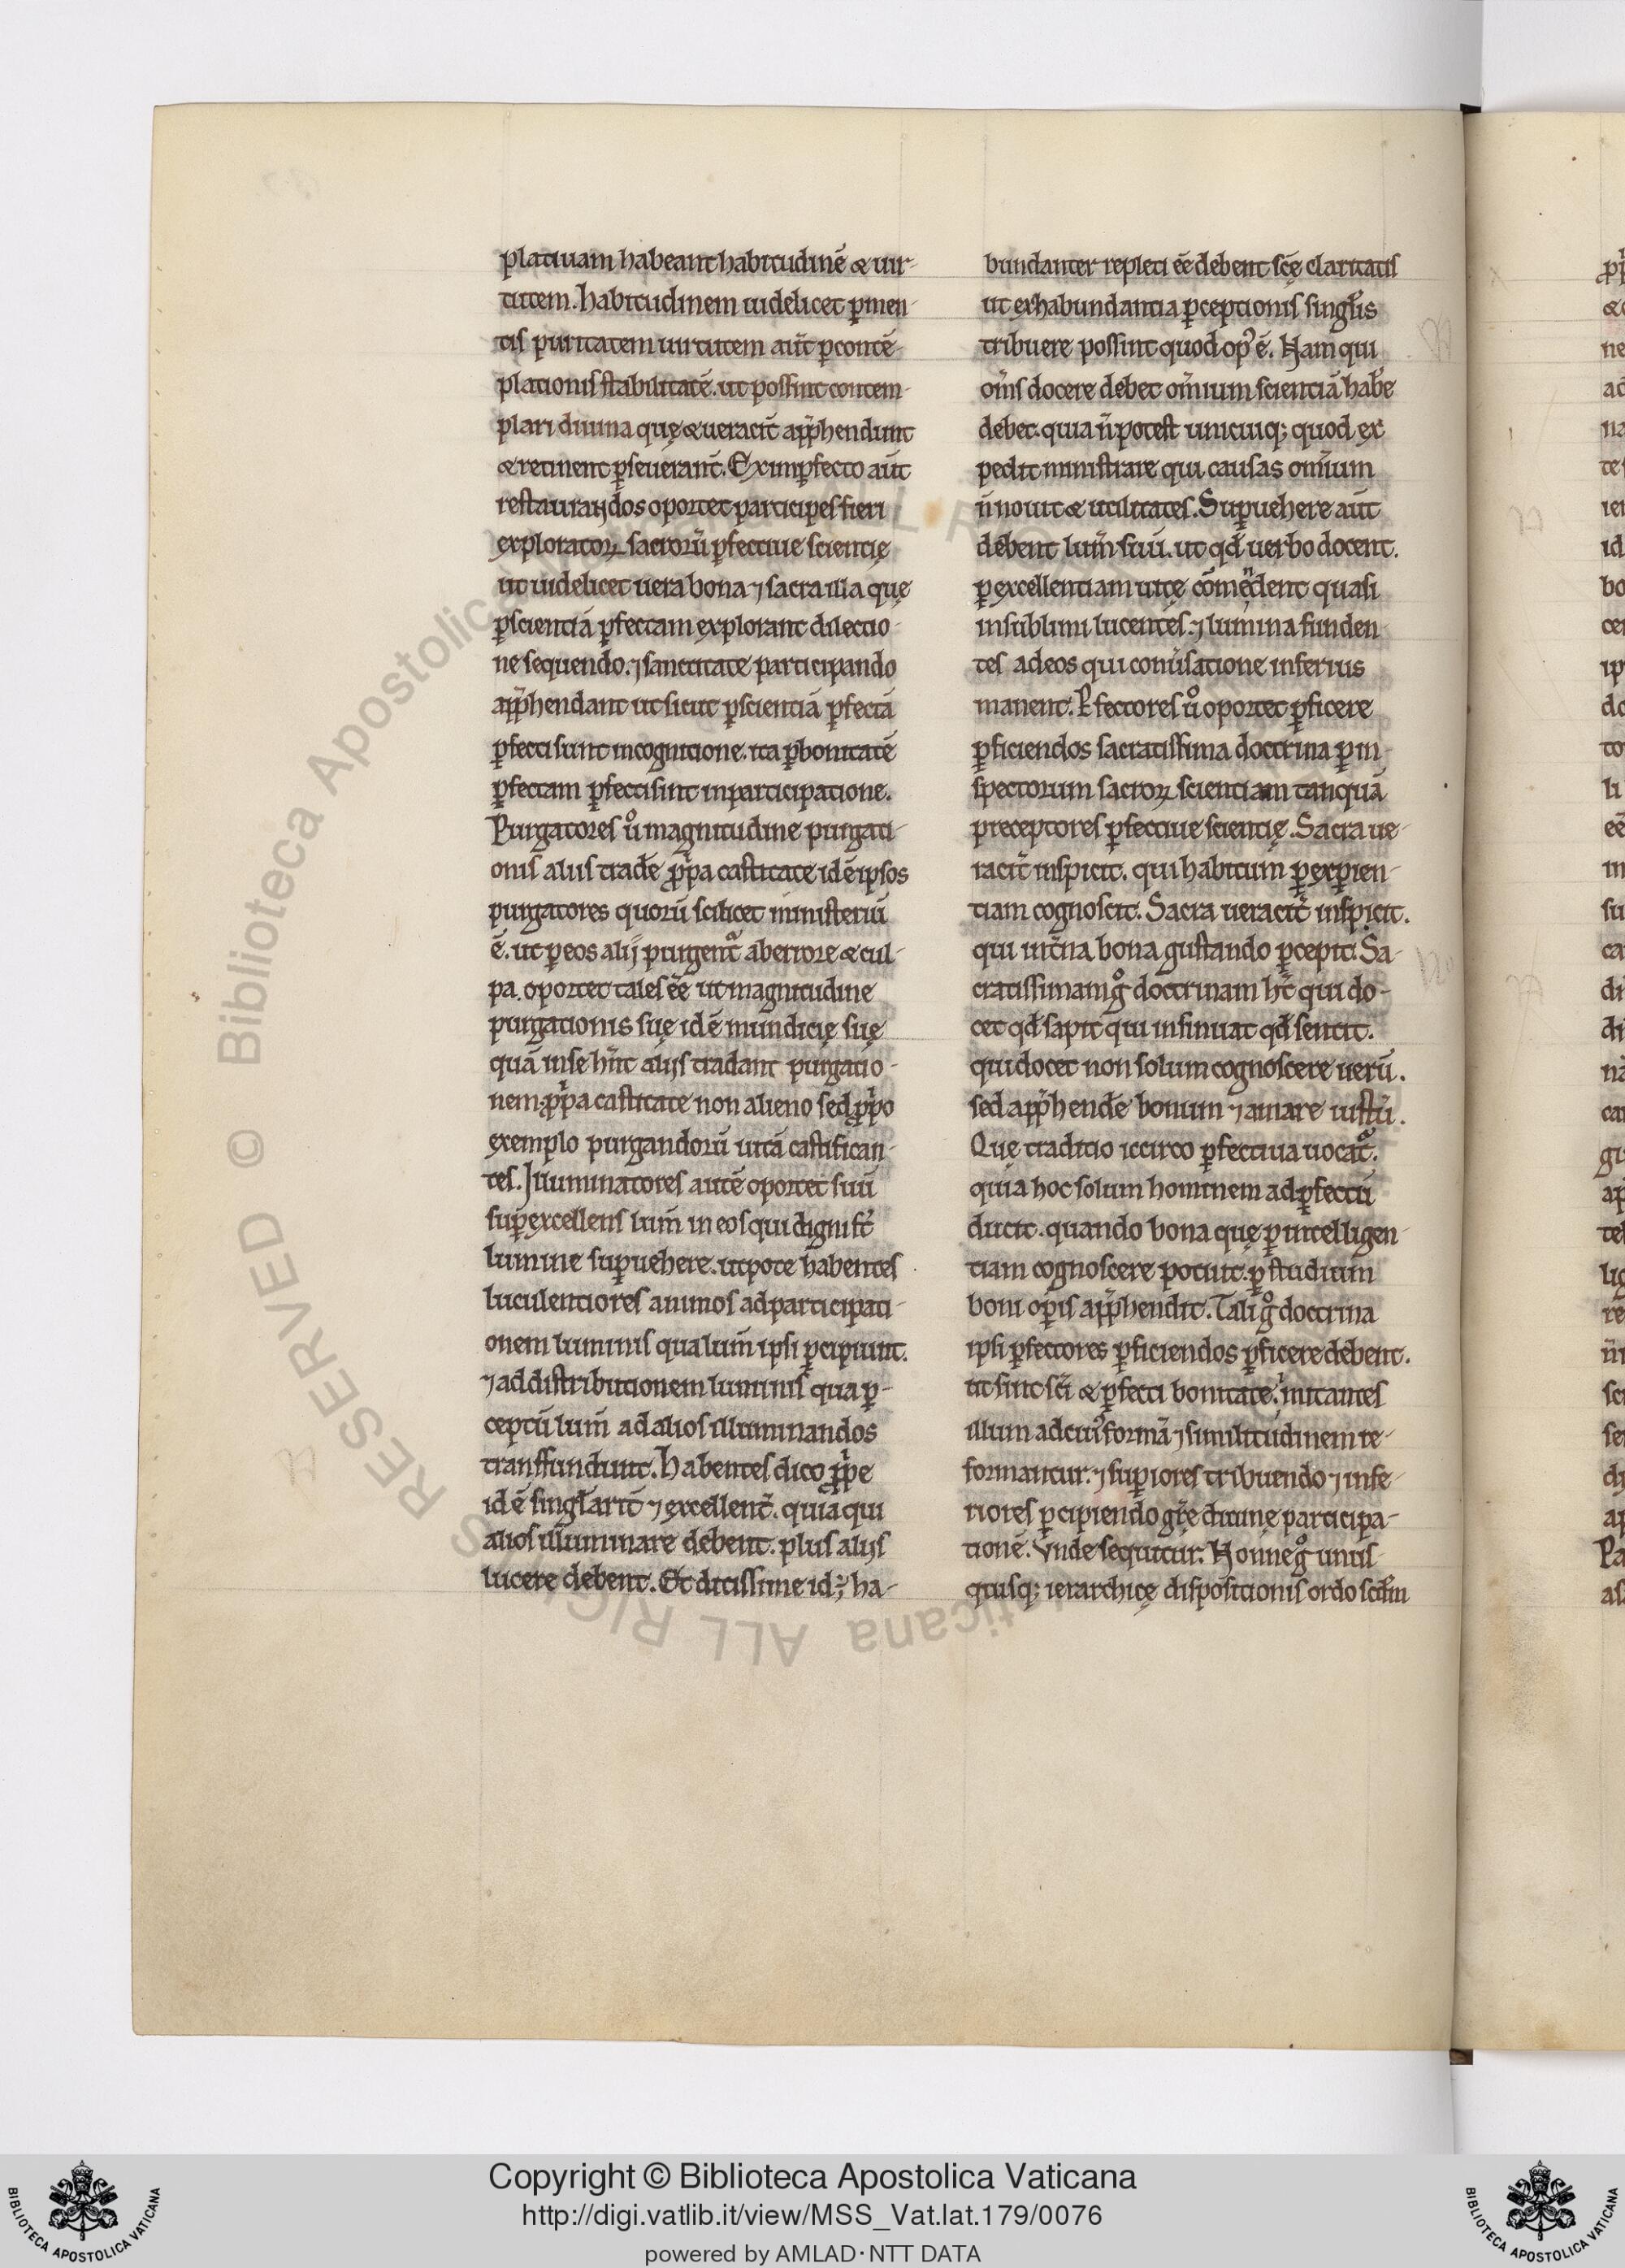 platiuam habeant habitudinē & uir-
tutem. habitudinem uidelicet ꝑ men-
tis puritatem uirtutem aut̄ ꝑ contē-
plationis stabilitatē. ut possint contem-
plari diuina quę & ueracit̄ app̄hendunt
& retinent ꝑseuerant̄. Ex imꝑfecto aut̄
restaurandos oportet participes fieri
exploratoꝝ sacrorū ꝑfectiue scientię
ut uidelicet uera bona ⁊ sacra illa quę
ꝑ scientiā ꝑfectam explorant dilectio-
ne sequendo. ⁊ sanctitate participando
app̄hendant ut sicut ꝑ scientiā ꝑfectā
ꝑfecti sunt in cognitione. ita ꝑ bonitatē
ꝑfectam ꝑfecti sint in participatione.
Purgatores uͦ magnitudine purgati-
onis aliis tradē ꝓpͥa castitate id ē ipsos
purgatores quorū scilicet ministeriū
ē. ut ꝑ eos alij purgentᷣ ab errore & cul-
pa. oportet tales eē ut magnitudine
purgationis suę id ē mundicię suę
quā in se hn̄t alijs tradant purgatio-
nem. ꝓpͥa castitate non alieno sed ꝓpͥo
exemplo purgandorū uitā castifican-
tes. Illuminatores autē oportet suū
suꝑexcellens lum̄ in eos qui digni st̄
lumine suꝑuehere. utpote habentes
luculentiores animos ad participati-
onem luminis qua lum̄ ipsi ꝑcipiunt.
⁊ ad distributionem luminis qua ꝑ-
ceptū lum̄ ad alios illuminandos
transfundunt. Habentes dico ꝓpͥe
id ē singl̄arit̄ ⁊ excellent̄. quia qui
alios illuminare debent. plus alijs
lucere debent. Et ditissime idꝫ ha-
bundanter repleti eē debent scę̄ claritatis
ut ex habundantia ꝑceptionis singl̄is
tribuere possint quod opꝰ ē. Nam qui
om̄s docere debet om̄ium scientiā habe͛
debet. quia n̄ potest unicuiqꝫ quod ex
pedit ministrare qui causas om̄ium
n̄ nouit & utilitates. Suꝑuehere aut̄
debent lum̄ suū. ut qd̄ uerbo docent.
ꝑ excellentiam uitę cōmendent quasi
in sublimi lucentes. ⁊ lumina funden-
tes ad eos qui conu͛satione inferius
manent. Ꝑfectores uͦ oportet ꝑficere
ꝑficiendos sacratissima doctrina ꝑ in-
spectorum sacroꝝ scientiam tanquā
preceptores ꝑfectiue scientię. Sacra ue-
racit̄ inspicit. qui habitum ꝑ exꝑien-
tiam cognoscit. Sacra ueracit̄ inspicit.
qui int̄na bona gustando ꝑcepit. Sa-
cratissimam gͦ doctrinam ht̄ qui do-
cet qd̄ sapit qui insinuat qd̄ sentit.
qui docet non solum cognoscere uerū.
sed app̄hendē bonum ⁊ amare iustū.
Quę traditio iccirco ꝑfectiua uocatᷣ.
quia hoc solum hominem ad ꝑfectū
ducit. quando bona quę ꝑ intelligen-
tiam cognoscere potuit. ꝑ studium
boni oꝑis app̄hendit. Tali gͦ doctrina
ipsi ꝑfectores ꝑficiendos ꝑficere debent.
ut sint sc̄i & ꝑfecti bonitate. imitantes
illum ad cuiꝰ formā ⁊ similitudinem re-
formantur. ⁊ suꝑiores tribuendo ⁊ infe-
riores ꝑcipiendo gr̄e diuinę participa-
tionē. Vnde sequitur. Nonne gͦ unus-
quisqꝫ ierarchicę dispositionis ordo scd̄m
Copyright © Biblioteca Apostolica Vaticana
http://digi.vatlib.it/view/MSS_Vat.lat.179/0076
powered by AMLAD·NTT DATA